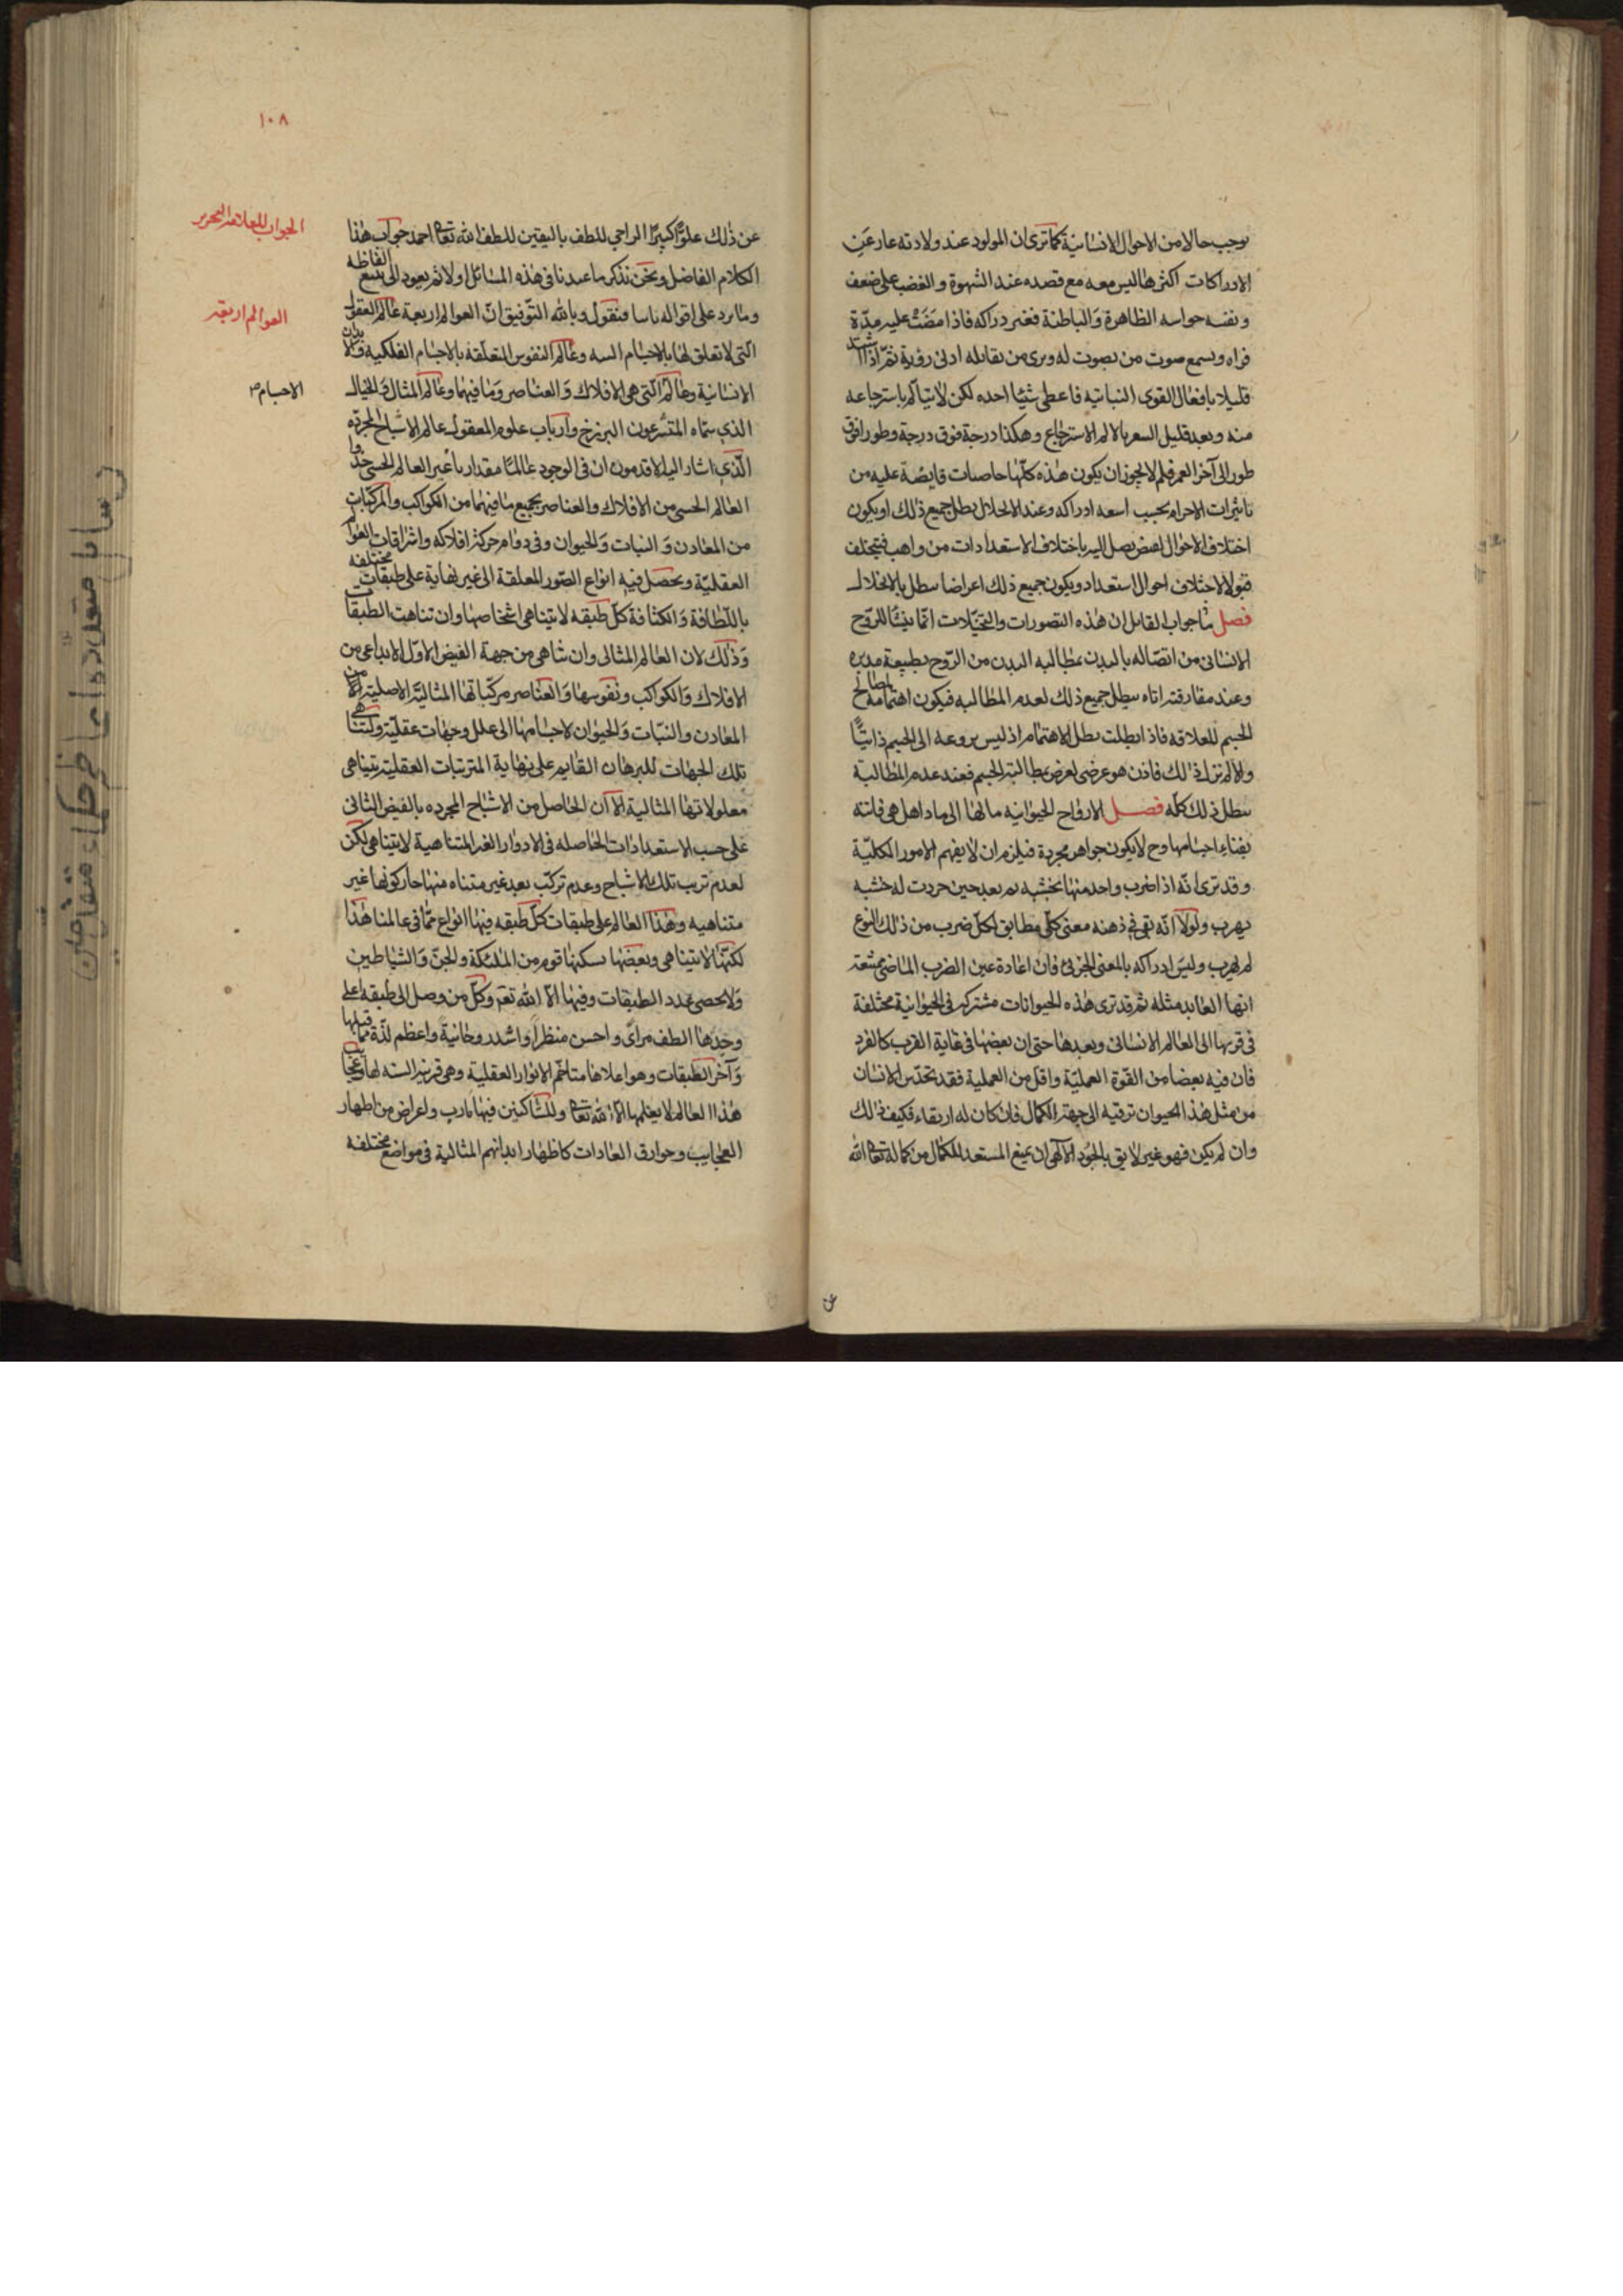 يوجب حالا من الاحوال الانسانية كما ترى ان المولود عند ولادته عار عن
الادراكات اكثرها ليس معه مع قصده عند الشهوة والغضب على ضعف
ونفسه حواسه الظاهرة والباطنة فغير دراكه فاذا مضت عليه مدة
فراه ويسمع صوت من يصوت له ويرى من يقابله ادنى رؤية ثم اذا اشتد
قليلا بافعال القوى النباتية فاعطى شيئا احده لكن لا يتالم باسترجاعه
منه وبعد قليل الالم الاسترجاع وهكذا درجة فوق درجة وطورا فوق
طور الى آخر العمر فلم لا يجوز ان يكون هذه كلها خاصيات فايضة عليه من
تاثيرات الاجرام بحسب ادراكه وعند الانحلال بطل جميع ذلك او يكون
اختلاف الاحوال لفيض يصل اليه باختلاف الاستعدادات من واهب فيختلف
قبولا لاختلاف احوال استعداد ويكون جميع ذلك اعراضا يبطل بالانحلال
فصل ما جواب القايل ان هذه التصورات والتخيلات انما ينشا للروح
الانسانى من اتصاله بالبدن بمطالبه البدن من الروح بطبيعة مدبره
وعند مفارقته اياه يبطل جميع ذلك لعدم المطالبه فيكون اهتمامه لمصالح
الجسم للعلاقه فاذا بطلت بطل الاهتمام اذ ليس بروعه الى الجسم ذاتيا
والا لم يزل ذلك فاذن هو عرضى لعرض مطالبته الجسم فعند عدم المطالبة
يبطل ذلك كله فصل الارواح الحيوانيه مالها الى ماذا هل هى فانيه
بفناء اجسامها وح لا يكون جواهر مجردة فيلزم ان لا يفهم الامور الكلية
وقد ترى انه اذا ضرب واحد منها بخشبه ثم بعد حين جردت له خشبه
يهرب ولولا انه بقى فى ذهنه معنى كلى مطابق لكل ضرب من ذلك النوع
لم يهرب وليس ادراكه بالمعنى الجزئى فان اعادة عين الضرب الماضى ممتنعة
انها العايد مثله ثم قد ترى هذه الحيوانات مشتركه فى الحيوانية مختلفة
فى قربها الى العالم الانسانى وبعدها حتى ان بعضها فى غاية القرب كالقرد
فان فيه بعضا من القوة العملية واقل من العملية فقد يحدس الانسان
من مثل هذا الحيوان ترقيه الى جهة الكمال فان كان له ارتقاء فكيف ذلك
وان لم يكن فهو غير لايق بالجود الالهى ان يمنع المستعد للكمال من كماله تعالى الله
١٠٨
عن ذلك علوا كبيرا الراجي للطف باليقين للطف الله تعالى احمد جواب هذا
الكلام الفاضل ونحن نذكر ما عندنا فى هذه المسائل اولا ثم يعود الى تتبع الفاظه
وما يرد على اقواله فنقول وبالله التوفيق ان العوالم اربعة عالم العقول
التى لا تعلق لها بالاجسام البته وعالم النفوس المتعلقه بالاجسام الفلكيه والابدان
الانسانية وعالم التى هى الافلاك والعناصر وما فيهما وعالم المثال والخيال
الذى سماه المتشرعون البرزخ وارباب علوم المعقول عالم الاشباح المجرده
الذى اشار اليه الاقدمون ان فى الوجود عالما مقداريا غير العالم الحسى
العالم الحسى من الافلاك والعناصر بجميع ما فيهما من الكواكب والمركبات
من المعادن والنبات والحيوان وفى دوام حركة افلاكه واشراقات العوالم
العقلية ويحصل فيه انواع الصور المعلقة الى غير نهاية على طبقات مختلفه
باللطافة والكثافة كل طبقه لا يتناهى اشخاصها وان تناهت الطبقات
وذلك لان العالم المثالى وان تناهى من جهة الفيض الاول الابداعى من
الافلاك والكواكب ونفوسها والعناصر مركباتها المثالية الاصلية من
المعادن والنبات والحيوان لاحتياجها الى علل وجهات عقلية وتناهى
تلك الجهات للبرهان القايم على نهاية المترتبات العقلية يتناهى
معلولاتها المثالية الا ان الحاصل من الاشباح المجرده بالفيض الثانى
على حسب الاستعدادات الحاصله فى الادوار الغير المتناهية لا يتناهى لكن
لعدم ترتب تلك الاشباح وعدم تركب بعد غير متناه منها جاز كونها غير
متناهيه وهذا العالم على طبقات كل طبقه فيها انواع مما فى عالمنا هذا
لكنها لا يتناهى وبعضها يسكنها قوم من الملئكة والجن والشياطين
ولا يحصى عدد الطبقات وفيها الا الله تعه وكل من وصل الى طبقه اعلى
وجدها الطف مرأى واحسن منظرا واشد روحانية واعظم لذة مما قبلها
وآخر الطبقات وهو اعلاها متاخم الانوار العقلية وهى قريبة الشبه لها وعجايب
هذا العالم لا يعلمها الا الله تعالى وللسالكين فيها مارب واغراض من اظهار
العجايب وخوارق العادات كاظهار ابدانهم المثالية فى مواضع مختلفه
العوالم اربعة
الاجسام